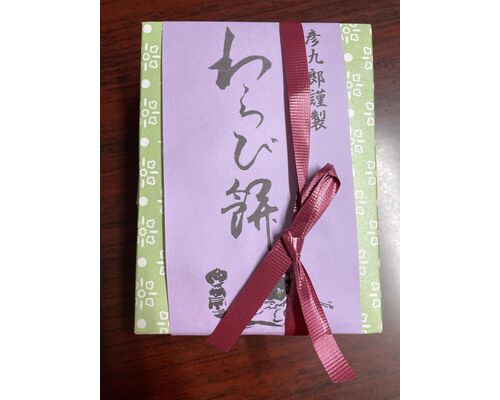 彦九郎謹製
わらび餅